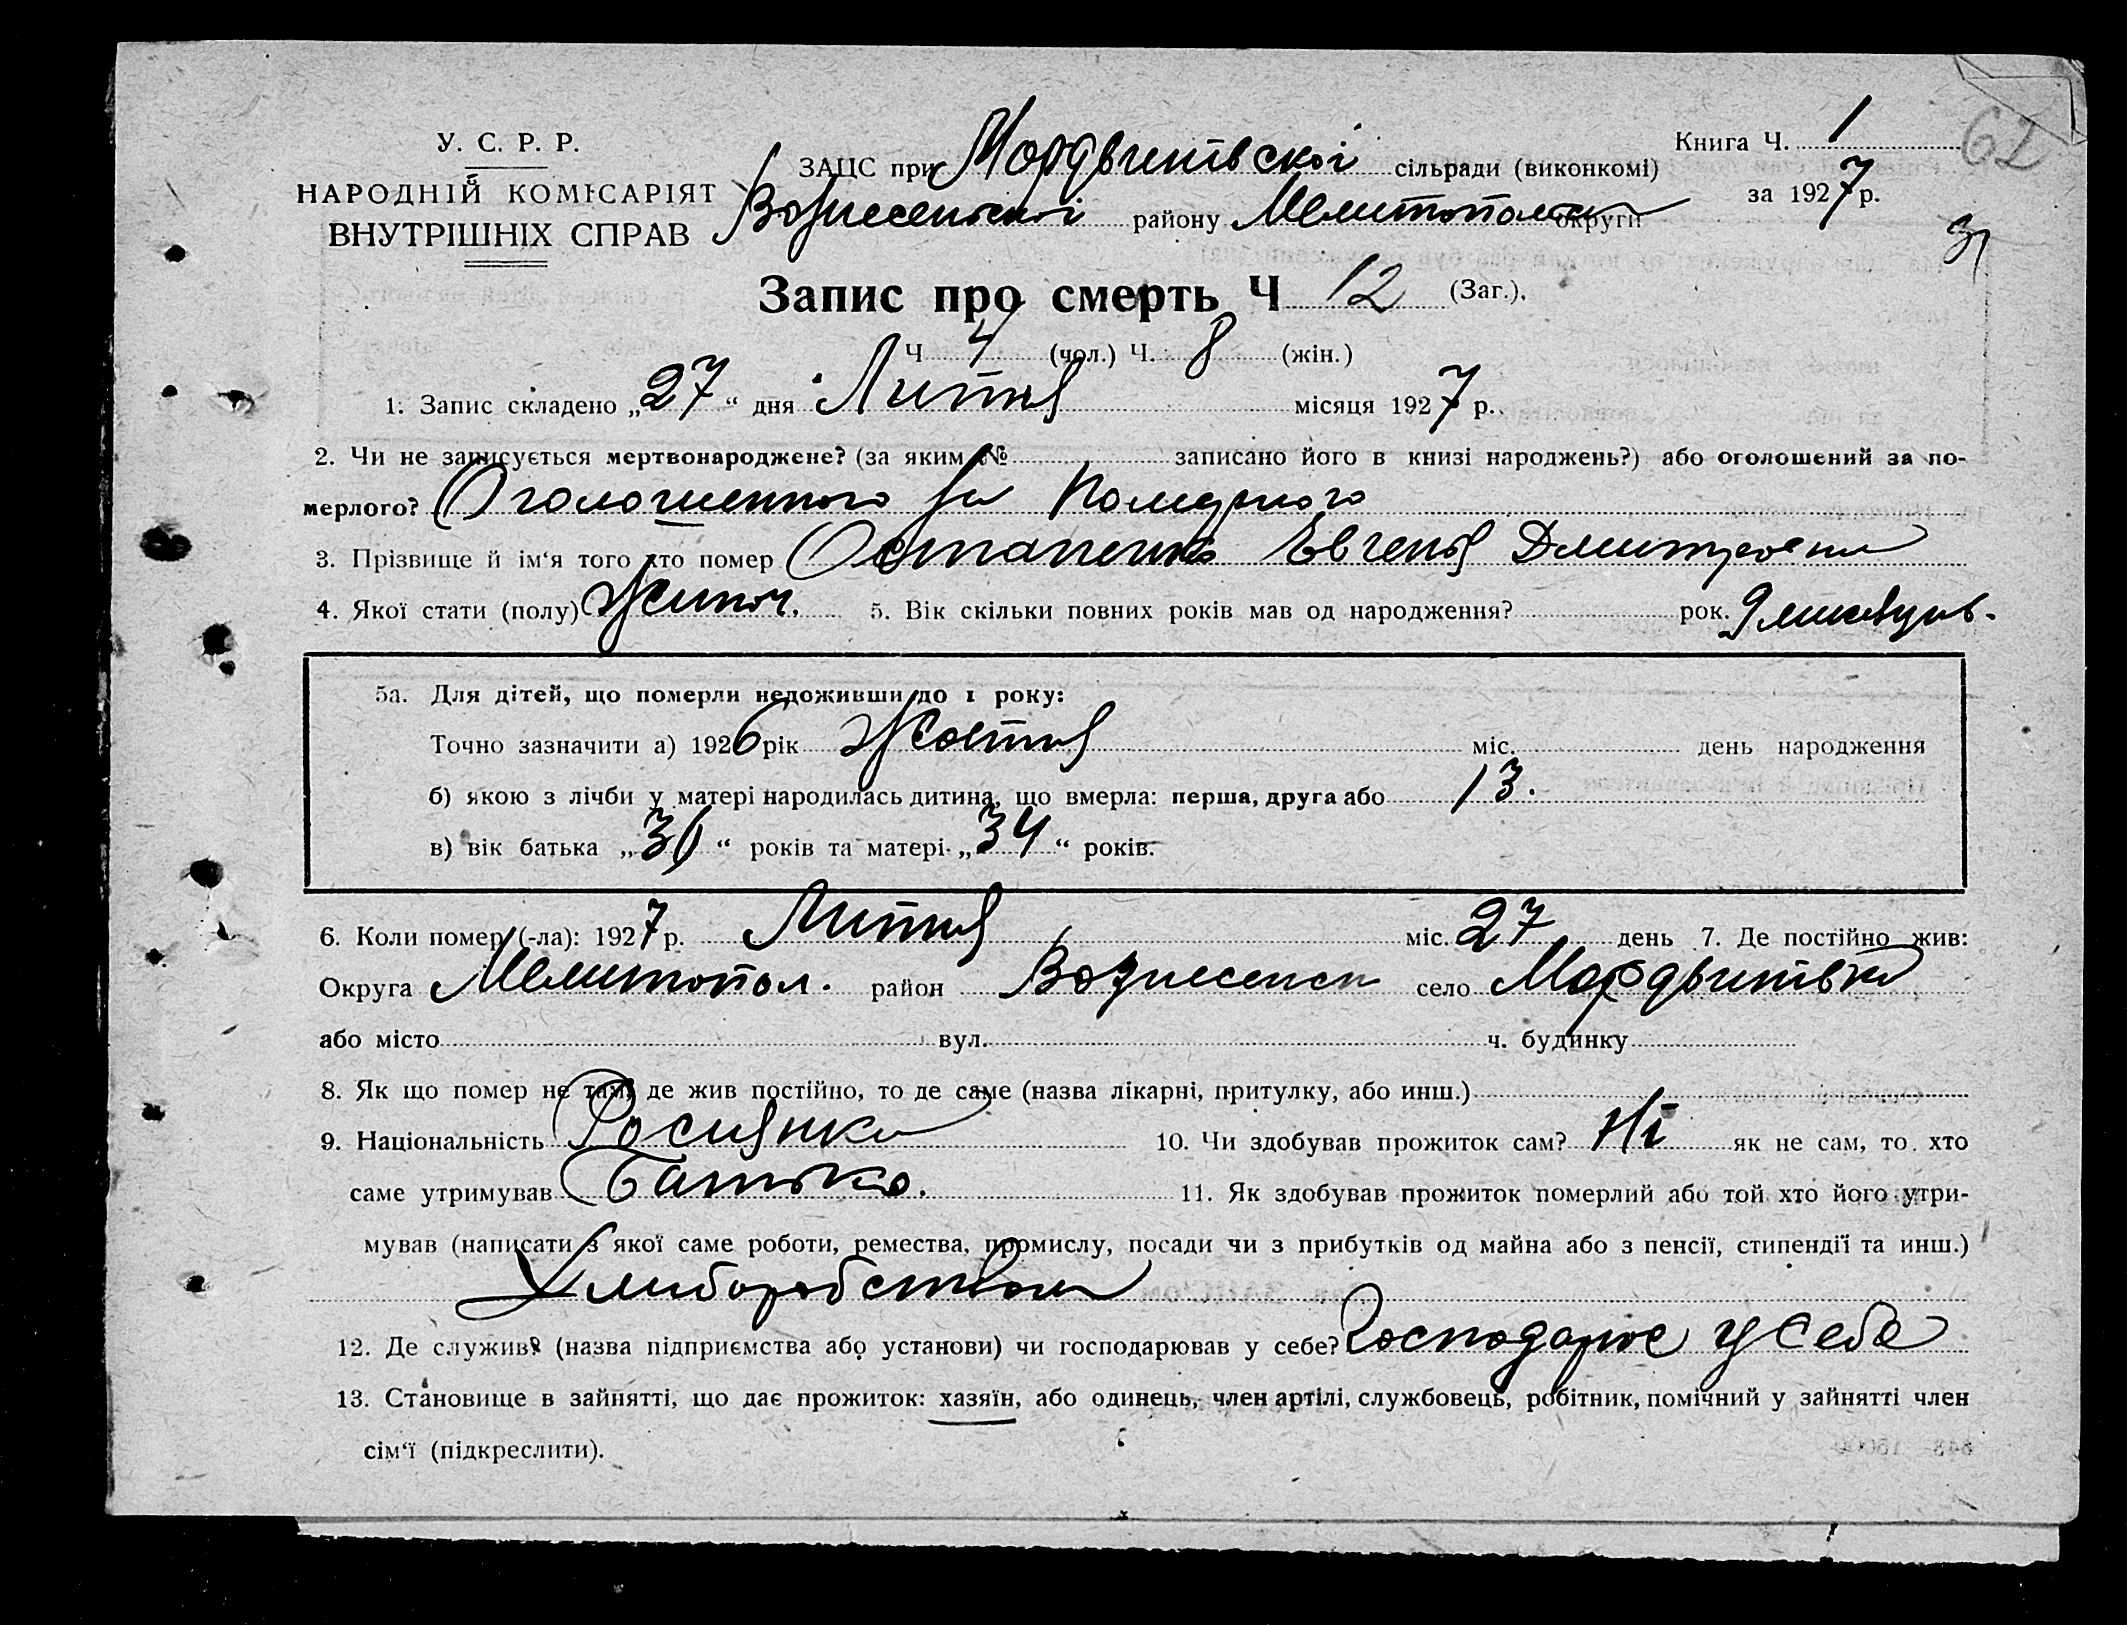 У. С. Р. Р.
НАРОДНІЙ КОМІСАРІЯТ
ВНУТРІШНІХ СПРАВ
ЗАЦС при Мордвинівскої сільради (виконкомі)
Вознесенської району Мелитопольськ округи
Книга Ч. 1
за 1927 р.
62
Запис про смерть Ч 12 (Заг.).
Ч 4 (чол.) Ч. 8 (жін.)
1. Запис складено „27“ дня Литня місяця 1927 р.
2. Чи не записується мертвонароджене? (за яким № записано його в книзі народжень?) або оголошений за по-
мерлого? Оголошенного за Померлого
3. Прізвище й ім‘я того хто помер Остапенко Евгенія Дмитровна
4. Якої стати (полу) Жиноч. 5. Вік скільки повних років мав од народження? рок.
5а. Для дітей, що померли недоживши до 1 року:
Точно зазначити а) 1926 рік Жовтня міс. день народження
б) якою з лічби у матері народилась дитина, що вмерла: перша, друга або 13.
в) вік батька „36“ років та матері „34“ років.
6. Коли помер (-ла): 1927 р. Литня міс. 27 день 7. Де постійно жив:
Округа Мелитопол. район Вознесенск село Мордвинівка
або місто вул. ч. будинку
8. Як що помер не там, де жив постійно, то де саме (назва лікарні, притулку, або инш.)
9. Національність Росиянка 10. Чи здобував прожиток сам? Ні як не сам, то хто
саме утримував Батько. 11. Як здобував прожиток померлий або той хто його утри-
мував (написати з якої саме роботи, ремества, промислу, посади чи з прибутків од майна або з пенсії, стипендії та инш.)
Хлиборобством
12. Де служив (назва підприємства або установи) чи господарював у себе? Господарює у Себе
13. Становище в зайнятті, що дає прожиток: хазяїн, або одинець, член артілі, службовець, робітник, помічний у зайнятті член
сім‘ї (підкреслити).